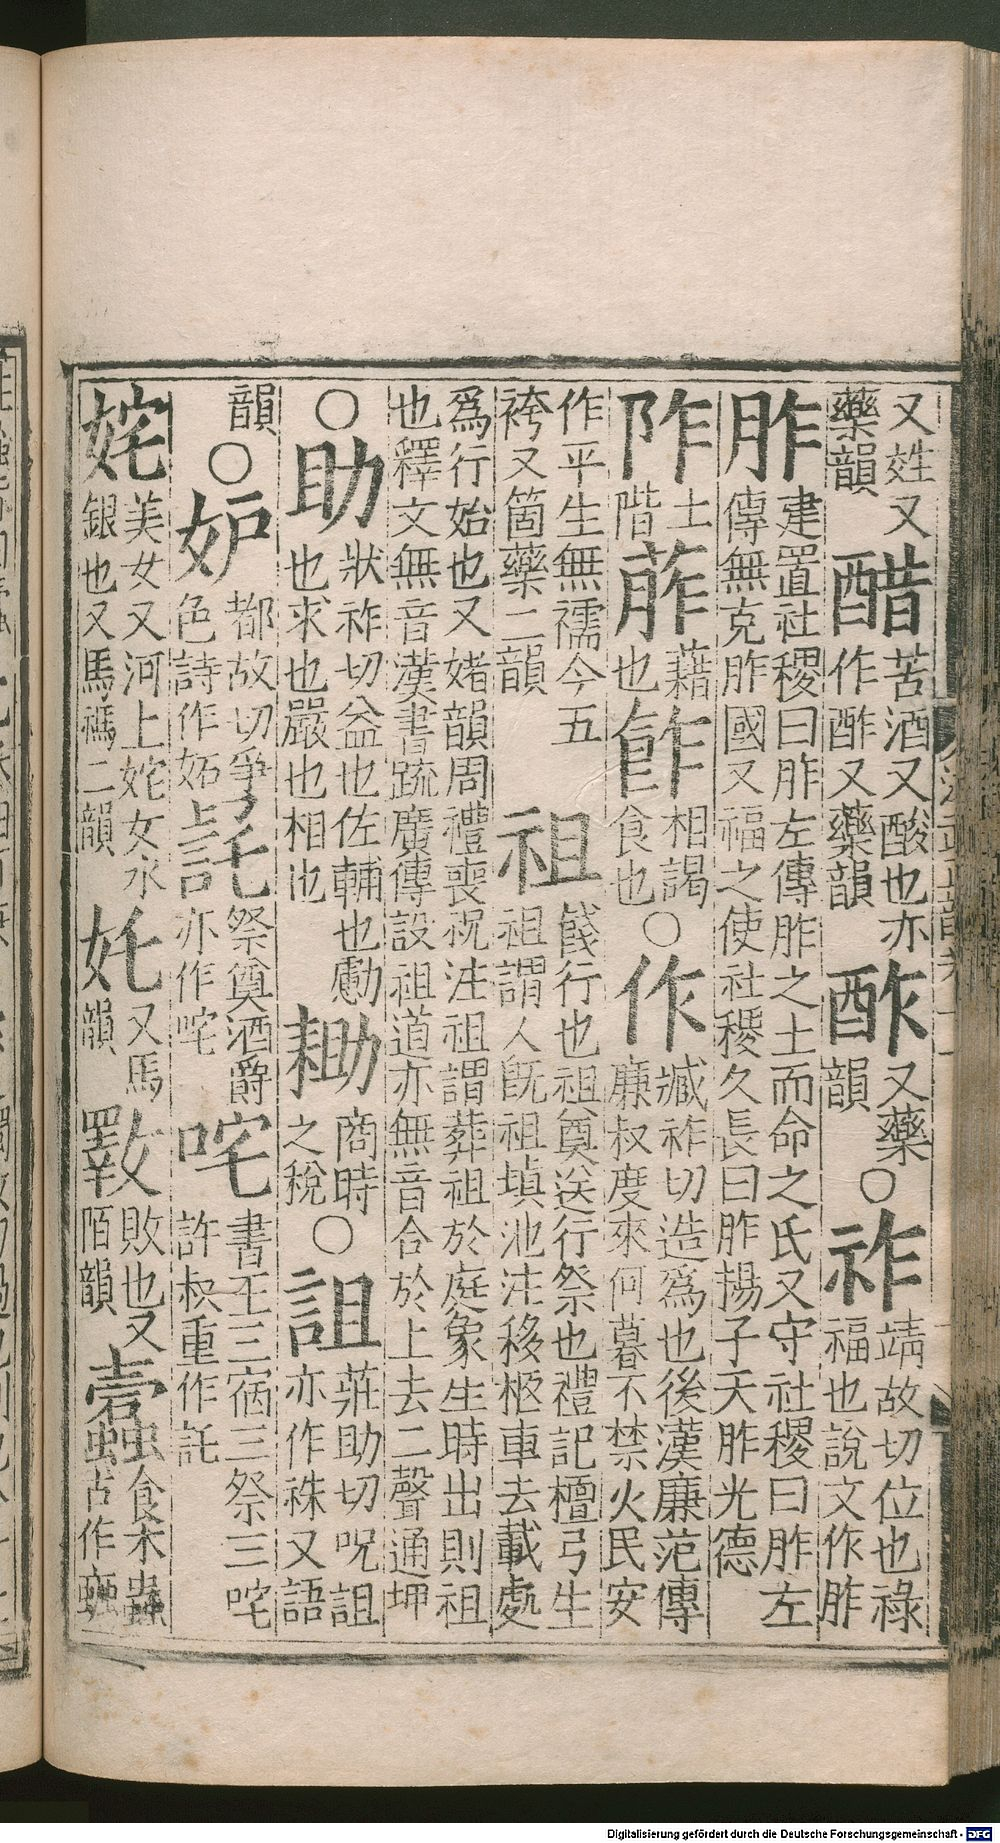 又姓又藥韻 醋 苦酒又酸也亦作酢又藥韻 酢 又藥韻 ○ 祚 靖故切位也祿福也說文作胙
胙 建置社稷曰胙左傳胙之土而命之氏又守社稷曰胙左傳無克胙國又福之使社稷久長曰胙揚子天胙光德
阼 士階 葄 藉也 飵 相謁食也 ○ 作 臧祚切造爲也後漢廉范傳廉叔度來何暮不禁火民安
作平生無襦今五袴又箇藥二韻 祖 餞行也祖奠送行祭也禮記檀弓生祖謂人旣祖塡池注移柩車去載處
爲行始也又姥韻周禮喪祝注祖謂葬祖於庭象生時出則祖也釋文無音漢書疏廣傳設祖道亦無音合於上去二聲通押
○ 助 狀祚切益也佐輔也勴也求也嚴也相也 耡 商時之稅 ○ 詛 莊助切呪詛亦作祩又語
韻 ○ 妒 都故切爭色詩作妬 託 祭奠酒爵亦作咤 咤 書王三宿三祭三咤許叔重作託
姹 美女又河上姹女水銀也又馬禡二韻 奼 又馬韻 斁 敗也又陌韻 蠹 食木蟲古作螙
Digitalisierung gefördert durch die Deutsche Forschungsgemeinschaft - DFG